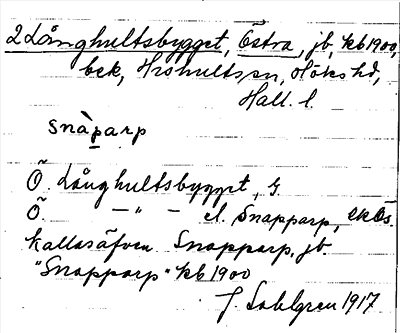 2 Långhultsbygget, Östra, jb, kb 1900,
bek, Hishults sn, Höks hd,
Hall. l.
snàparp
Ö. Långhultsbygget, G.
Ö. — " — el. Snapparp,
kallas äfven Snapparp, jb.
"Snapparp" kb 1900
J. Sahlgren 1917